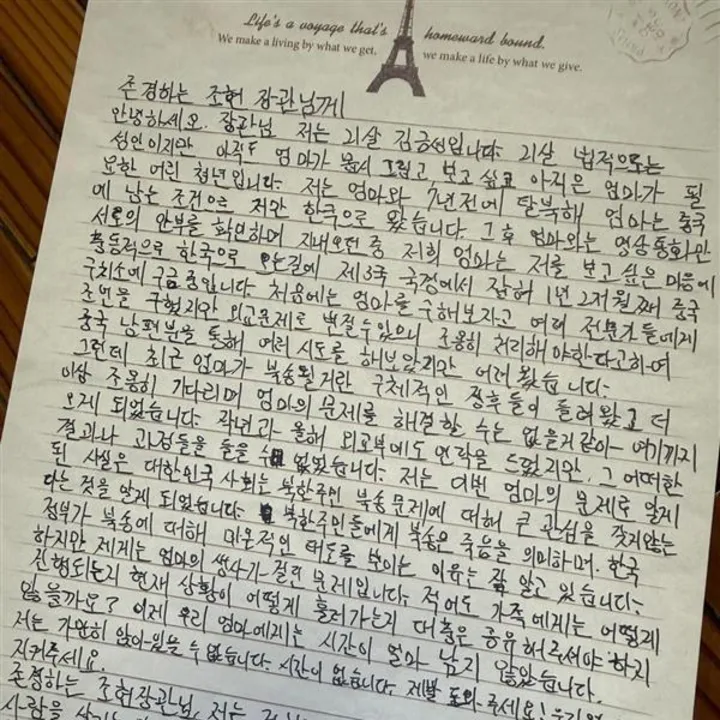 Life's a voyage that's homeward bound.
We make a living by what we get, we make a life by what we give.
존경하는 조현 장관님께
안녕하세요. 장관님 저는 21살 김금성입니다. 21살 법적으로는
성인이지만 아직도 엄마가 몹시 그립고 보고 싶고 아직은 엄마가 필
요한 어린 청년입니다. 저는 엄마와 7년전에 탈북해 엄마는 중국
에 남는 조건으로 저만 한국으로 왔습니다. 그 후 엄마와는 영상통화만
서로의 안부를 확인하며 지내오던 중 저희 엄마는 저를 보고 싶은 마음에
충동적으로 한국으로 오는길에 제3국 국경에서 잡혀 1년 2개월째 중국
구치소에 구금중입니다. 처음에는 엄마를 구해보자고 여러 전문가들에게
조언을 구했지만 외교문제로 번질수있으니 조용히 처리해야한다고하여
중국 남편분을 통해 여러 시도를 해보았지만 어려웠습니다.
그런데 최근 엄마가 북송될거란 구체적인 징후들이 들려왔고 더
이상 조용히 기다리며 엄마의 문제를 해결할 수는 없을거같아 여기까지
오게 되었습니다. 작년과 올해 외교부에도 연락을 드렸지만, 그 어떠한
결과나 과정들을 들을 수 없었습니다. 저는 이번 엄마의 문제로 알게
된 사실은 대한민국 사회는 북한주민 북송문제에 대해 큰 관심을 갖지않는
다는 것을 알게 되었습니다. 북한주민들에게 북송은 죽음을 의미하며. 한국
정부가 북송에 대해 미온적인 태도를 보이는 이유는 잘 알고 있습니다.
하지만 제게는 엄마의 생사가 걸린 문제입니다. 적어도 가족에게는 어떻게
진행되는지 현재 상황이 어떻게 흘러가는지 대충은 공유해주셔야 하지
않을까요? 이제 우리 엄마에게는 시간이 얼마 남지 않았습니다.
저는 가만히 앉아있을 수 없습니다. 시간이 없습니다. 제발 도와주세요!
지켜주세요.
존경하는 조현장관님, 저는
사람을